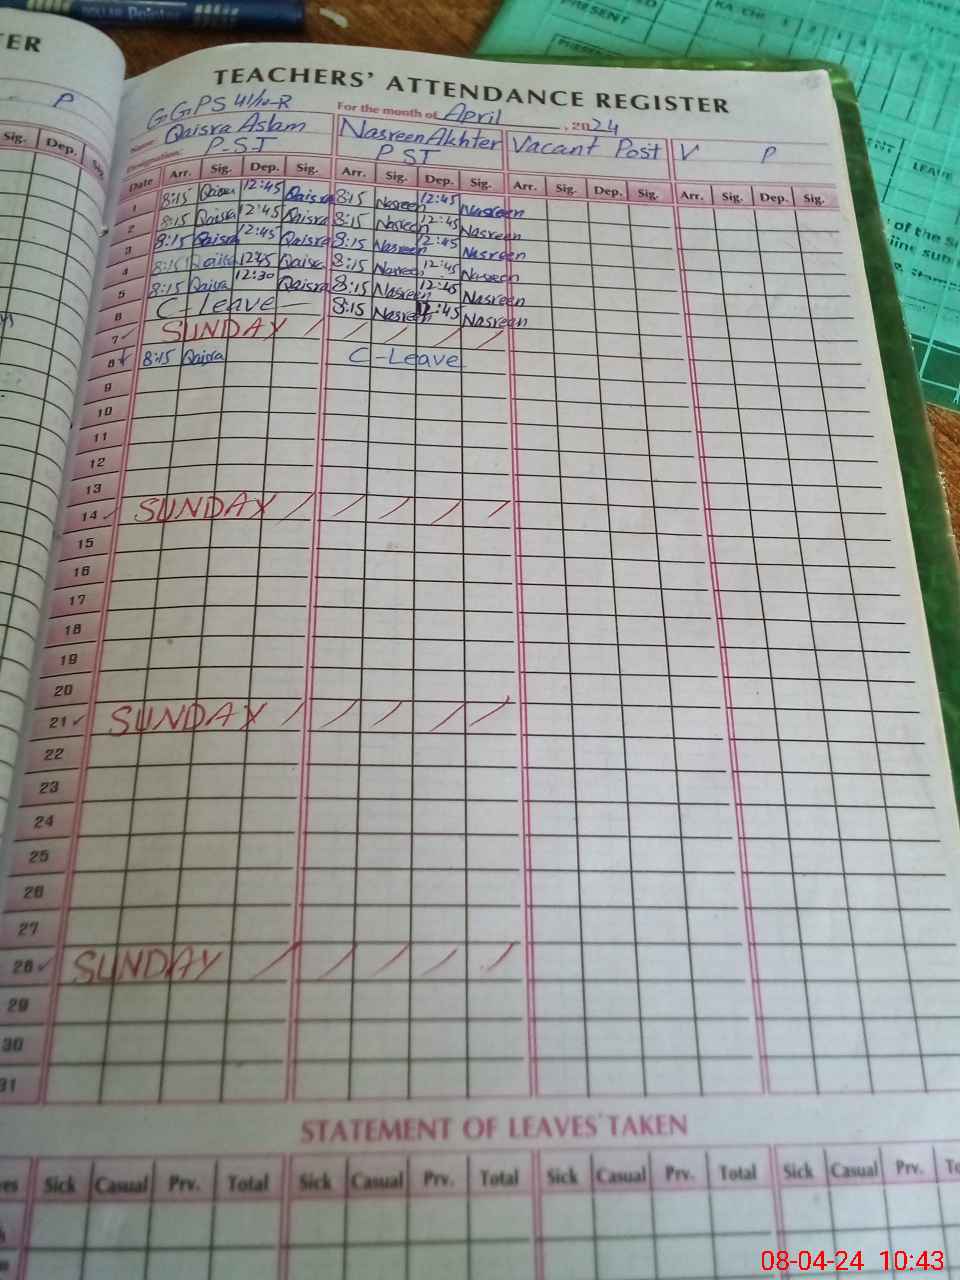 DOLLAR Pointer
PRESENT
KA-CHI
LEAVE
TER
P
Sig. Dep. Sig.
TEACHERS' ATTENDANCE REGISTER
GGPS 41/10-R For the month of April, 2024
Name: Qaisra Aslam Nasreen Akhter Vacant Post V P
Designation: P.S.T P ST
Date Arr. Sig. Dep. Sig. Arr. Sig. Dep. Sig. Arr. Sig. Dep. Sig. Arr. Sig. Dep. Sig.
1 8:15 Qaisra 12:45 Qaisra 8:15 Nasreen 12:45 Nasreen
2 8:15 Qaisra 12:45 Qaisra 8:15 Nasreen 12:45 Nasreen
3 8:15 Qaisra 12:45 Qaisra 8:15 Nasreen 12:45 Nasreen
4 8:15 Qaisra 12:45 Qaisra 8:15 Nasreen 12:45 Nasreen
5 8:15 Qaisra 12:30 Qaisra 8:15 Nasreen 12:45 Nasreen
6 C-Leave 8:15 Nasreen 12:45 Nasreen
7 SUNDAY
8 8:15 Qaisra C-Leave
9
10
11
12
13
14 SUNDAY
15
16
17
18
19
20
21 SUNDAY
22
23
24
25
26
27
28 SUNDAY
29
30
31
STATEMENT OF LEAVES TAKEN
Sick Casual Prv. Total Sick Casual Prv. Total Sick Casual Prv. Total Sick Casual Prv.
08-04-24 10:43